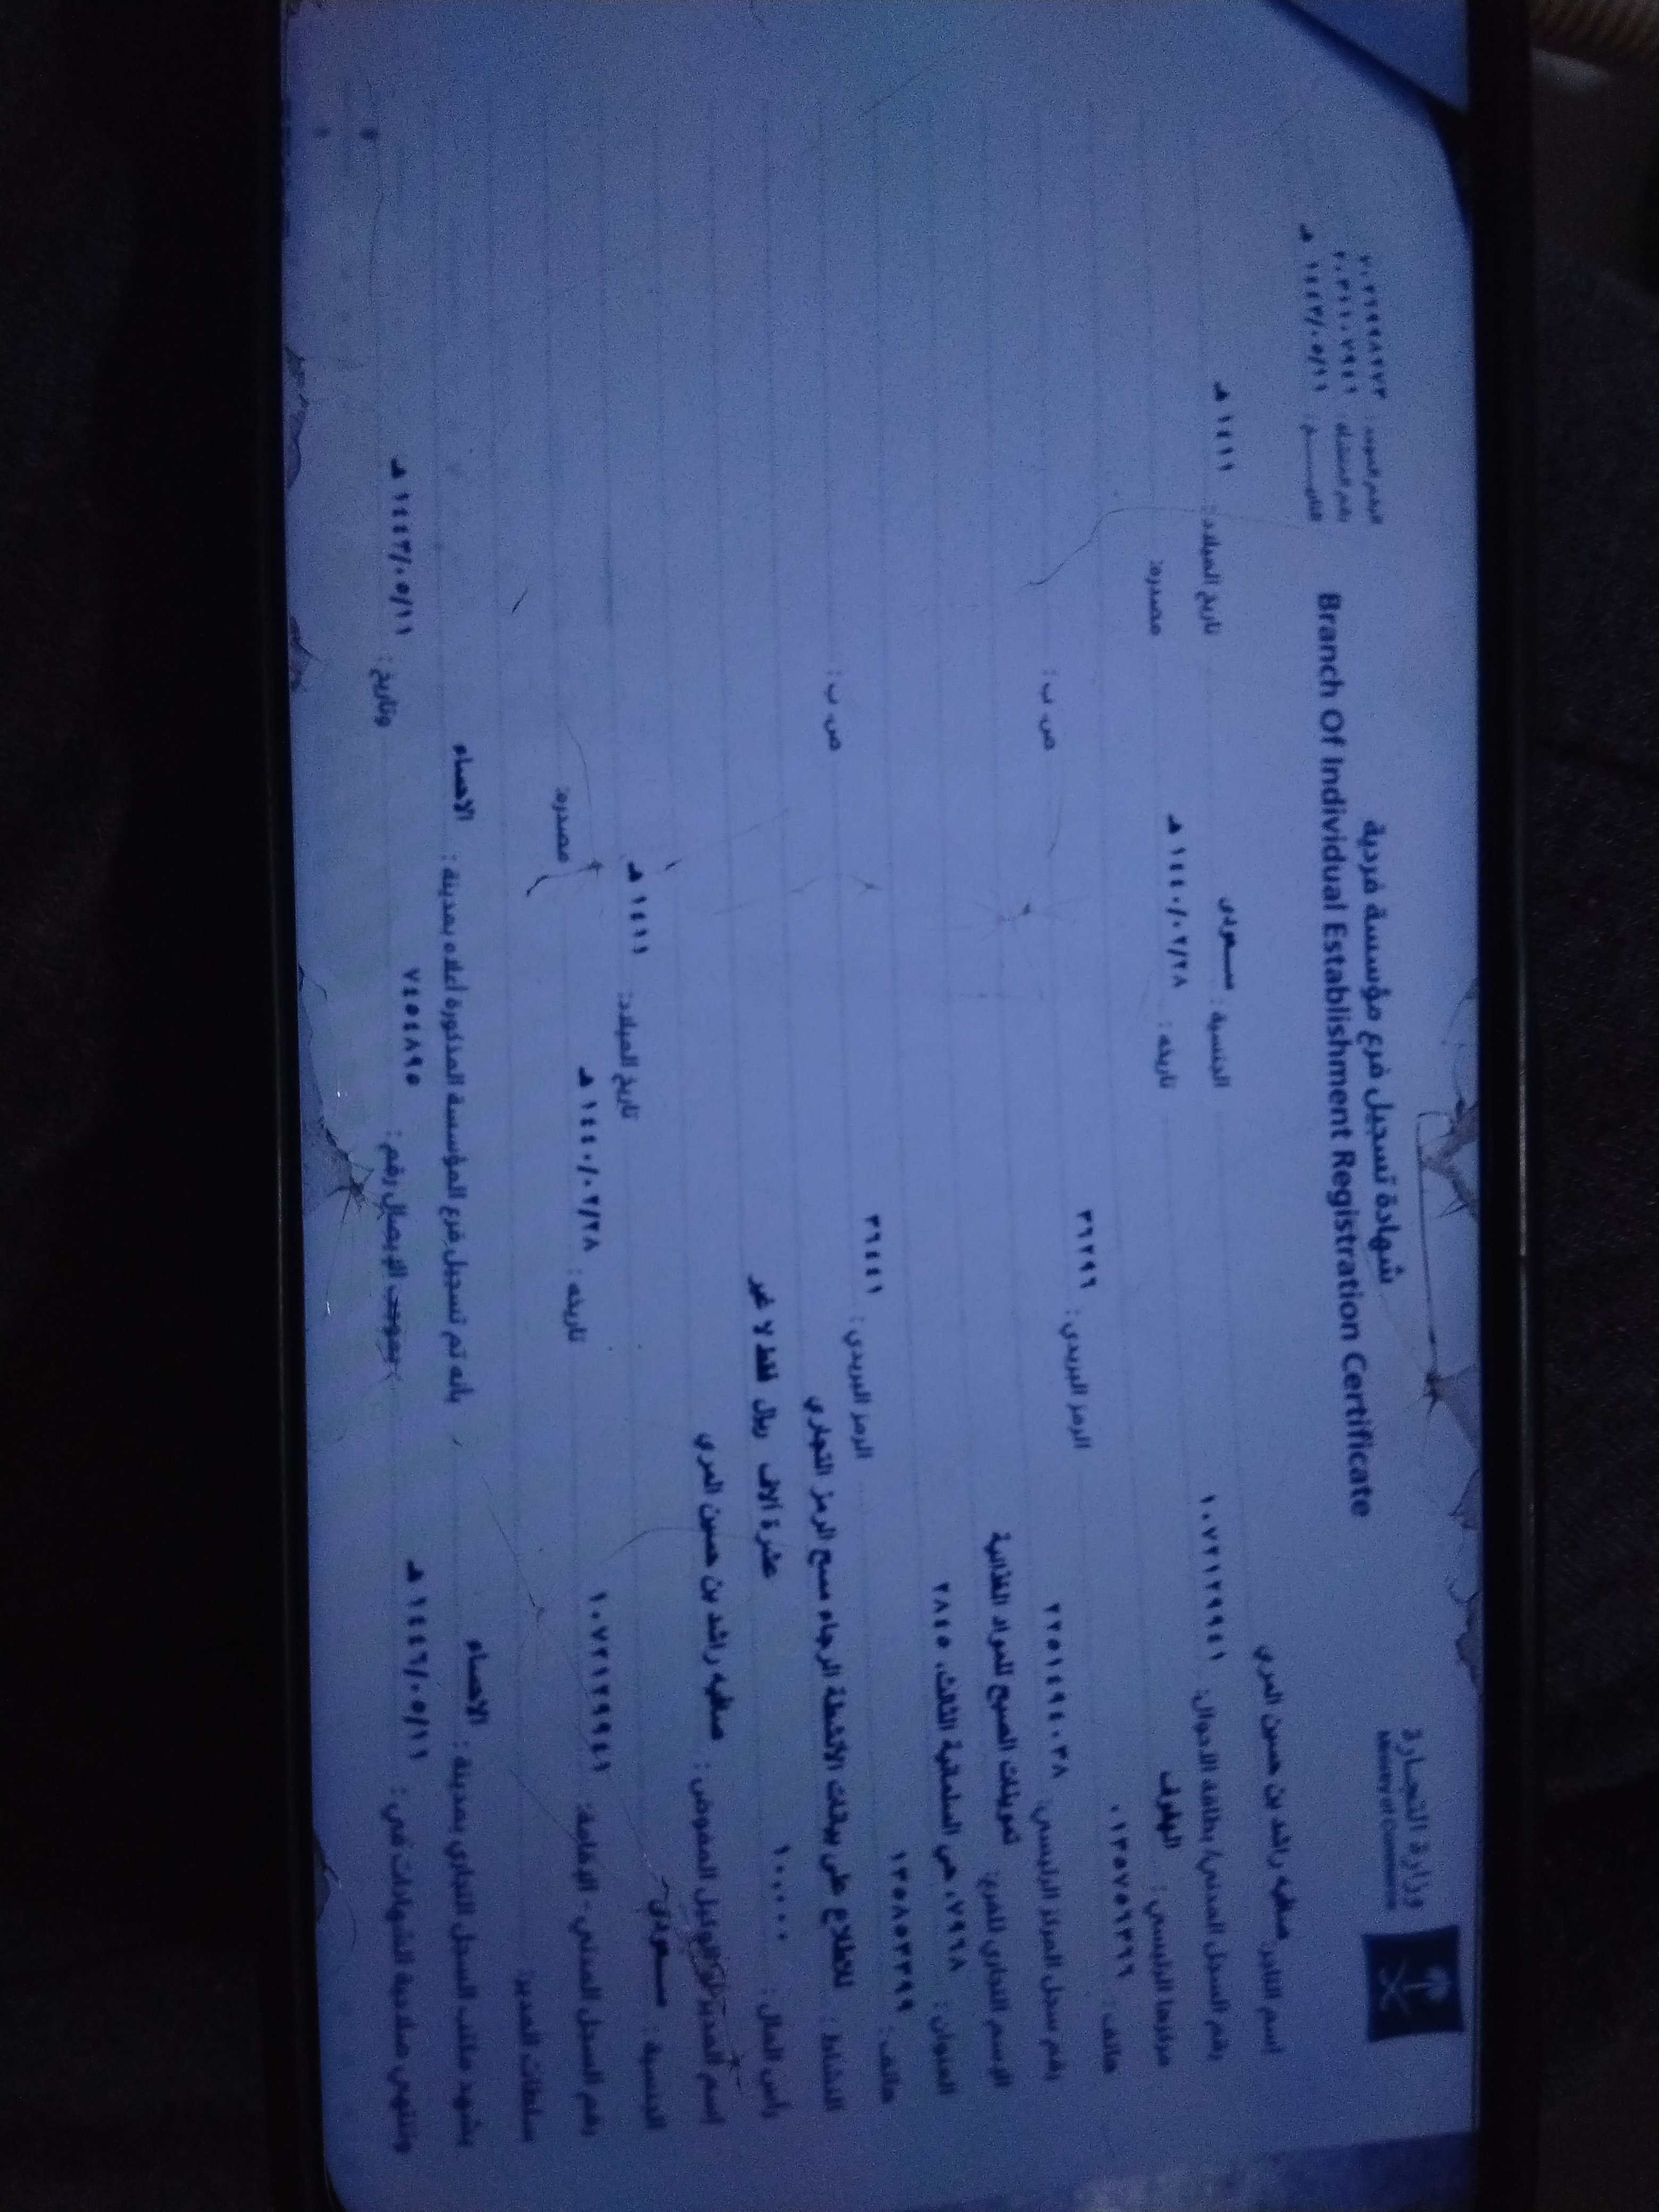 وزارة التجارة
Ministry of Commerce
شهادة تسجيل فرع مؤسسة فردية
Branch Of Individual Establishment Registration Certificate
الرقم الموحد :
رقم المنشأة :
التاريخ : ١٤٤٣/٠٥/١١ هـ
اسم التاجر: راشد بن حسين المري
رقم السجل المدني/ بطاقة الاحوال: ١٠٧٢١٢٩٩٤١ الجنسية : سعودي تاريخ الميلاد : ١٤١١ هـ
مركزها الرئيسي : الهفوف تاريخه : ١٤٤٠/٠٢/٢٨ هـ مصدره:
هاتف : ٠١٣٥٧٥٦٢٦٦ الرمز البريدي : ٣٦٢٩٦ ص. ب :
رقم سجل المركز الرئيسي: ٢٢٥١٤٩٤٠٣٨
الإسم التجاري للفرع: تموينات السبع للمواد الغذائية
العنوان : ٧٩٦٨، حي السلمانية الثالث، ٢٨٤٥
هاتف : ١٣٥٨٥٣٢٩٩ الرمز البريدي : ٣٦٤٤١ ص. ب :
النشاط : للاطلاع على بيانات الأنشطة الرجاء مسح الرمز التجاري
رأس المال : ١٠,٠٠٠ عشرة آلاف ريال فقط لا غير
إسم المدير/ الوكيل المفوض : راشد بن حسين المري
الجنسية : سعودي تاريخ الميلاد: ١٤١١ هـ
رقم السجل المدني - الإقامة: ١٠٧٢١٢٩٩٤١ تاريخه : ١٤٤٠/٠٢/٢٨ هـ مصدره:
سلطات المدير:
يشهد مكتب السجل التجاري بمدينة : الاحساء بأنه تم تسجيل فرع المؤسسة المذكورة أعلاه بمدينة : الاحساء
وتنتهي صلاحية الشهادات في : ١٤٤٦/٠٥/١١ هـ بموجب الإيصال رقم : ٧٤٥٤٨٩٥ وتاريخ : ١٤٤٣/٠٥/١١ هـ